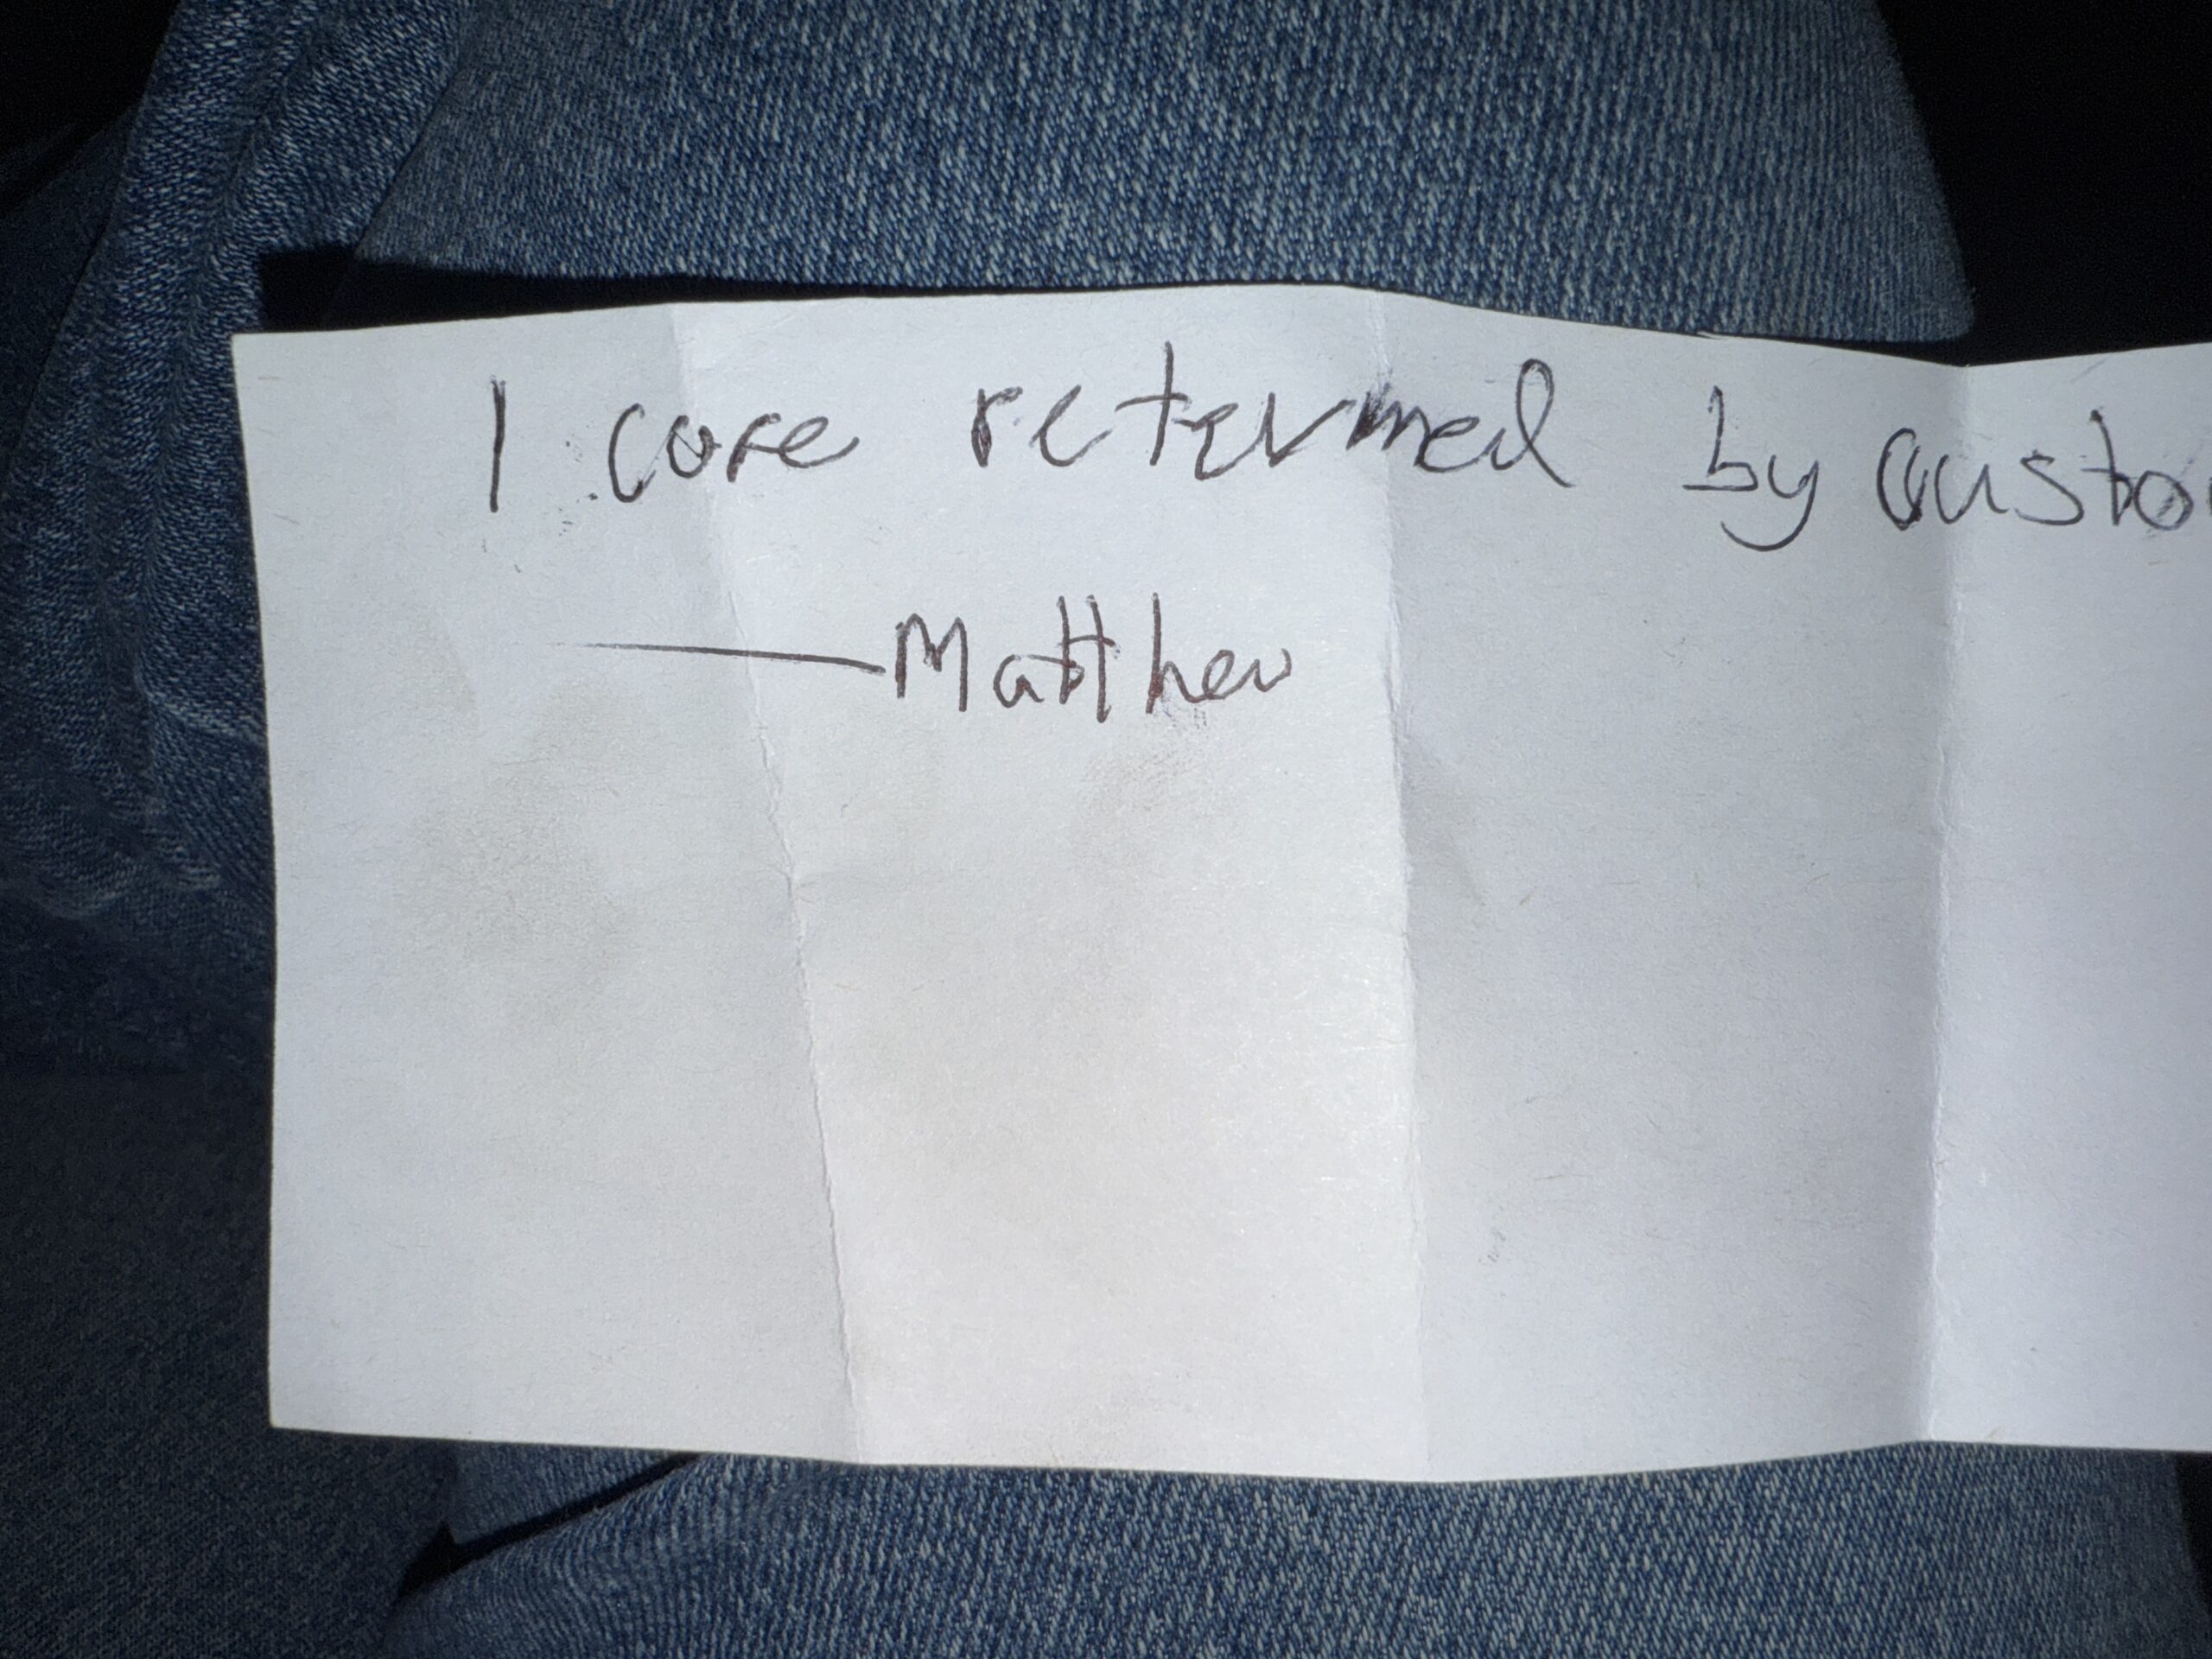 1 core returned by custo
— Matthew